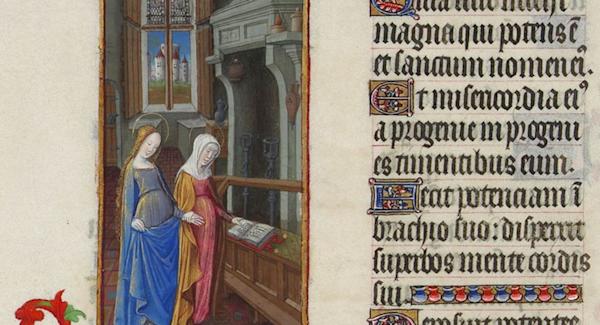 Quia fecit michi
magna qui potens ē
et sanctum nomen eiꝰ.
Et misericordia eiꝰ
a progenie in progeni
es timentibus eum.
Fecit potenciam ī
brachio suo: dispersit
superbos mente cordis
sui.
Deposuit potentes